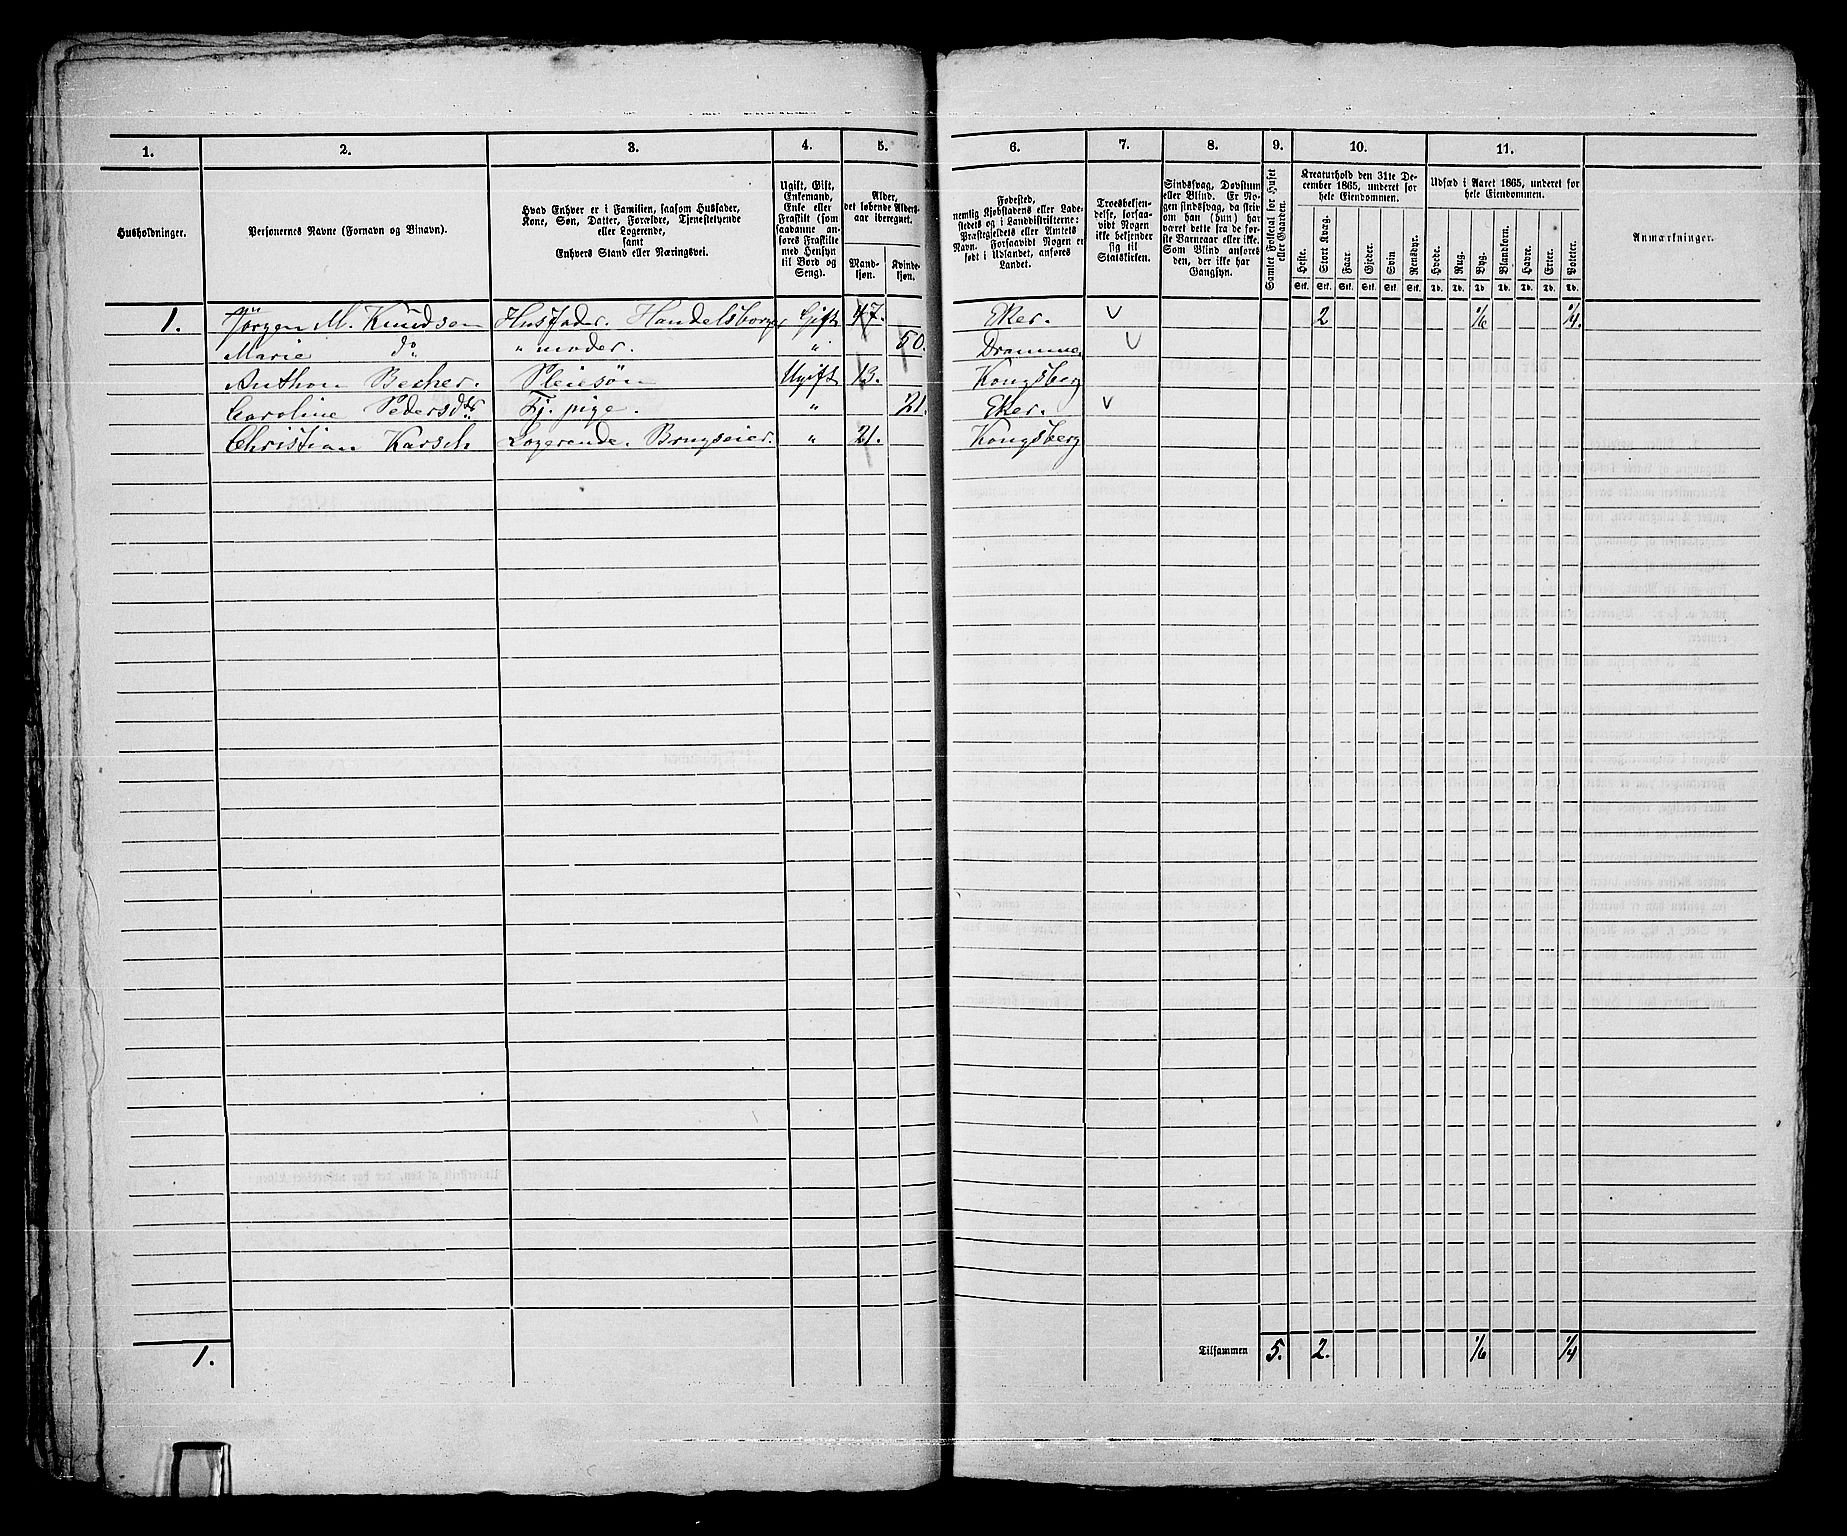 1. 2. 3. 4. 5. 6. 7. 8. 9. 10. 11.
Husholdninger.
Personernes Navne (Fornavn og Binavn).
Hvad Enhver er i Familien, saasom Husfader,
Kone, Søn, Datter, Forældre, Tjenestetyende
eller Logerende,
samt
Enhvers Stand eller Næringsvei.
Ugift, Gift,
Enkemand,
Enke eller
Fraskilt (som
saadanne an-
føres Fraskilte
med Hensyn
til Bord og
Seng).
Alder,
det løbende Alders-
aar iberegnet.
Mand-
kjøn.
Kvinde-
kjøn.
Fødested,
nemlig Kjøbstadens eller Lade-
stedets og i Landdistrikterne:
Præstegjeldets eller Amtets
Navn. Forsaavidt Nogen er
født i Udlandet, anføres
Landet.
Troesbekjen-
delse, forsaa-
vidt Nogen
ikke bekjender
sig til
Statskirken.
Sindssvag, Døvstum
eller Blind. Er No-
gen sindssvag, da skriv
om han (hun) har
været dette fra de før-
ste Barneaar eller ikke.
Som Blind anføres
den, der ikke har
Gangsyn.
Samlet Folketal for Huset
eller Gaarden.
Kreaturhold den 31te De-
cember 1865, underet for
hele Eiendommen.
Heste. Stort Kvæg. Faar. Gjeder. Svin Rensdyr.
Stk. Stk. Stk. Stk. Stk. Stk.
Udsæd i Aaret 1865, underet for
hele Eiendommen.
Hvede. Rug. Byg. Blandkorn. Havre. Erter. Poteter.
Td. Td. Td Td. Td. Td. Td.
Anmærkninger.
1. Jørgen M. Knudsen Husfader. Handelsborger Gift 47. Eker. v 2 1/6 1/4.
Marie do " moder. " 50. Drammen v
Anthon Becher. Pleiesøn Ugift 13. Kongsberg
Caroline Pedersdtr Tj. pige. " 21. Eker. v
Christian Karsch Logerende. Brugseier. " 21. Kongsberg
1. Tilsammen 5. 2. 1/6 1/4